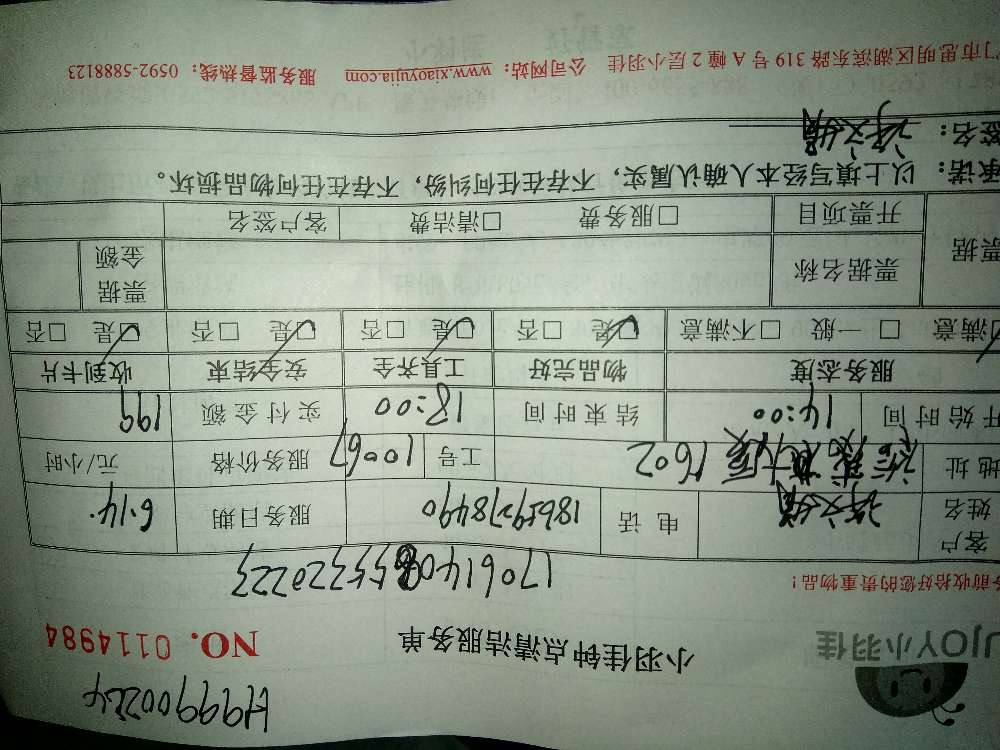 H99900224
UJOY小羽佳 小羽佳钟点清洁服务单 NO. 0114984
务前收拾好您的贵重物品！
客户姓名 许文娟 电话 18659278490 服务日期 6.14.
地址 1602 工号 10067 服务价格 元/小时
开始时间 14:00 结束时间 18:00 实付金额 199
服务态度 物品完好 工具齐全 安全结束 收到卡片
满意 □ 一般 □不满意 ☑是 □否 ☑是 □否 ☑是 □否 ☑是 □否
票据 票据名称 票据金额
开票项目 □服务费 □清洁费 客户签名
承诺：以上填写经本人确认属实，不存在任何纠纷，不存在任何物品损坏。
签名：许文娟
门市思明区湖滨东路 319 号 A 幢 2 层小羽佳 公司网站：www.xiaoyujia.com 服务监督热线：0592-5888123